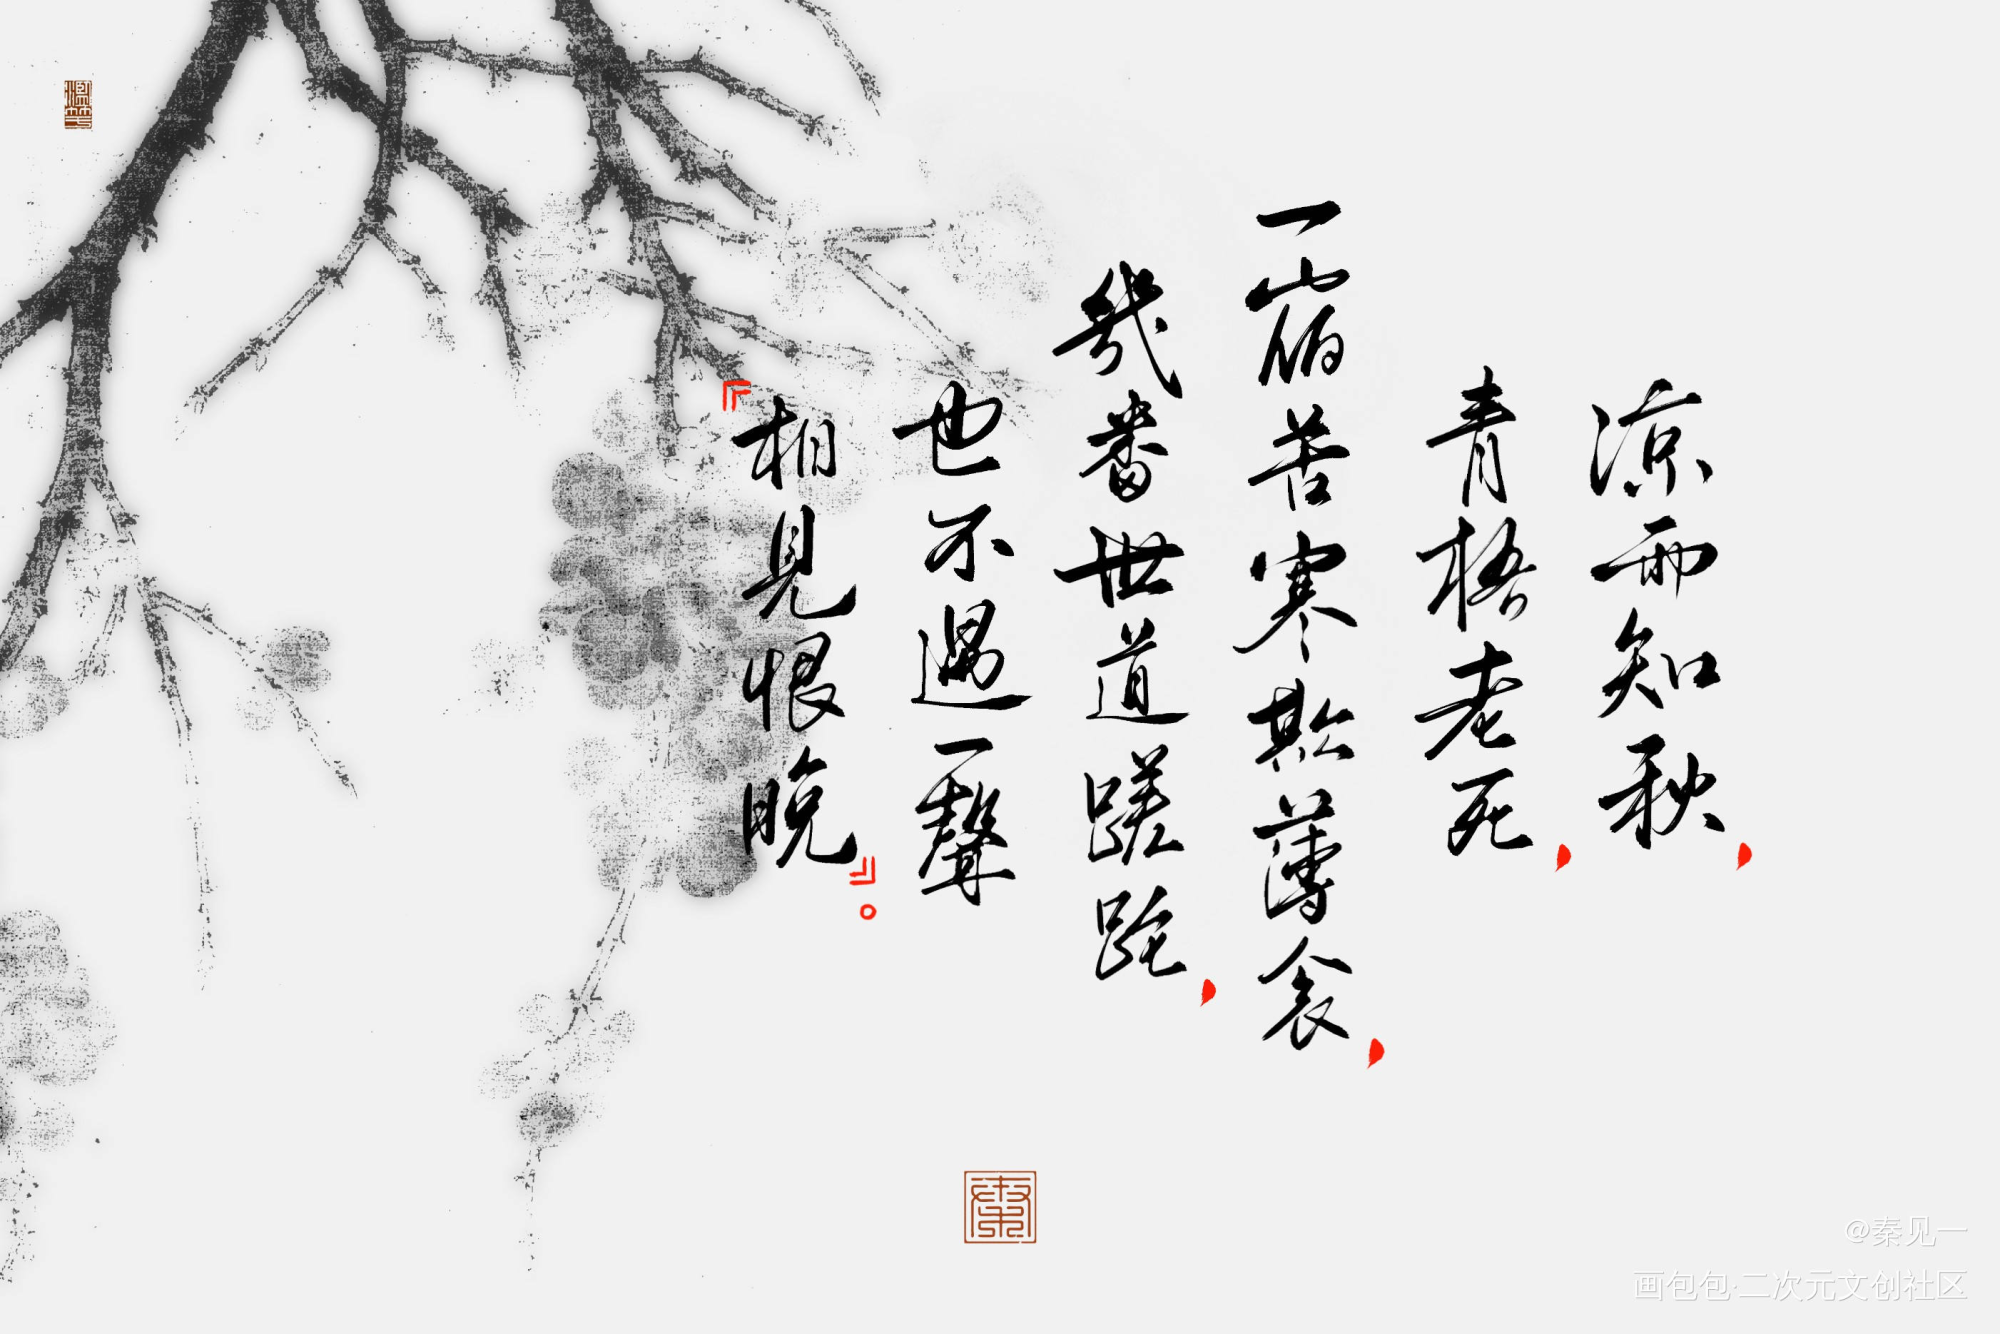 凉雨知秋，
青梧老死，
一宿苦寒欺薄衾，
幾番世道蹉跎，
也不過一聲
『相見恨晚』。
@秦见一
画包包·二次元文创社区